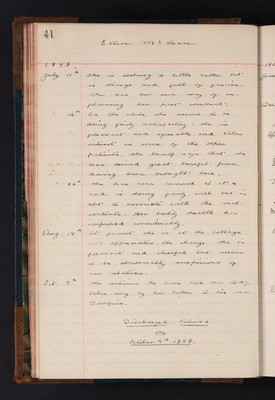 41
Ellen McLean
1898
July 11th She is looking a little better but
is strange and full of
She has her own way of
her past conduct.
" 14th On the whole she seems to be
doing fairly satisfactorily. She is
pleasant and agreeable and takes
interest in some of the other
patients. She herself says that she
has derived great benefit from
having been brought here.
She has been removed to
and is doing fairly well but is
apt to associate with the
Her bodily health has
improved considerably.
Aug. 18th At present she is at the cottage
and appreciates the change. She is
pleasant and cheerful but seems
to be abnormally suspicious of
her relatives.
Oct. 7th She
taken away by her
Discharged Relieved
on
October 7th 1898.